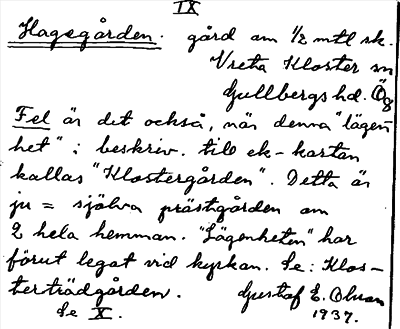 IX
Hagegården. gård om 1/2 mtl sk.
Vreta Kloster sn
Gullbergs hd. Ög
Fel är det också, när denna "lägen
het" i beskriv. till ek-kartan
kallas "Klostergården". Detta är
ju = själva prästgården om
2 hela hemman. "Lägenheten" har
förut legat vid kyrkan. Se: Klos-
terträdgården. Gustaf E. Olsson
Se X. 1937.